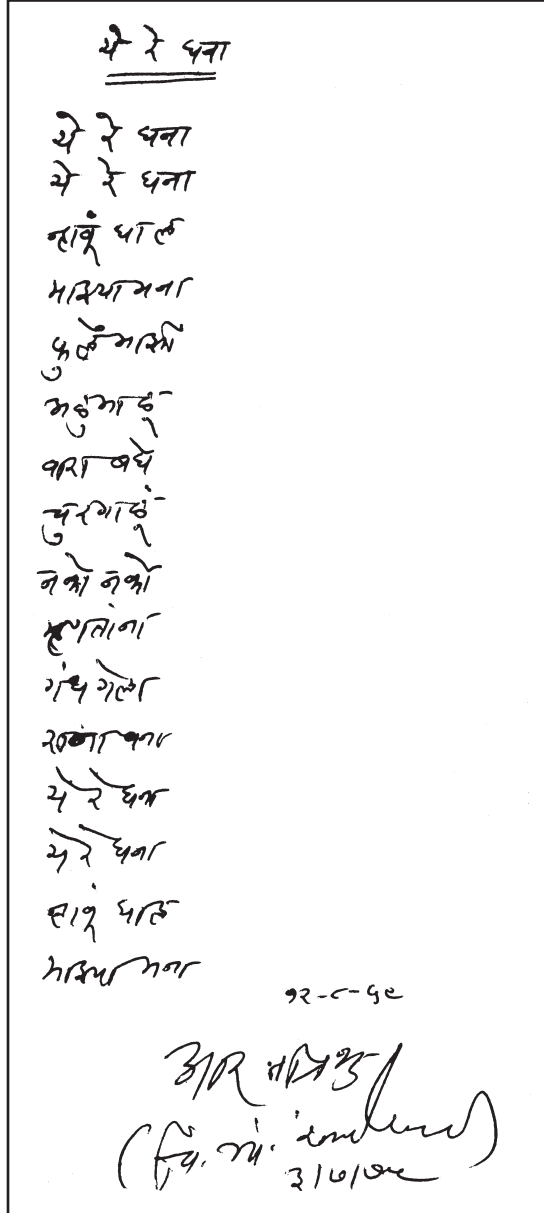 ये रे घना
ये रे घना
ये रे घना
न्हावूं घाल
माझिया मना
फुलें माझीं
अळुंमाळूं
वारा बघे
चुरगाळूं
नको नको
म्हणतांना
गंध गेला
रानांवना
ये रे घना
ये रे घना
न्हावूं घाल
माझिया मना
१२-८-५९
आरती प्रभू
(चिं. त्र्यं. खानोलकर)